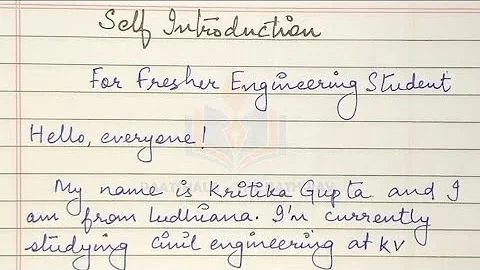 Self Introduction
For Fresher Engineering Student
Hello, everyone!
My name is Kritika Gupta and I
am from Ludhiana. I'm currently
studying Civil engineering at KV